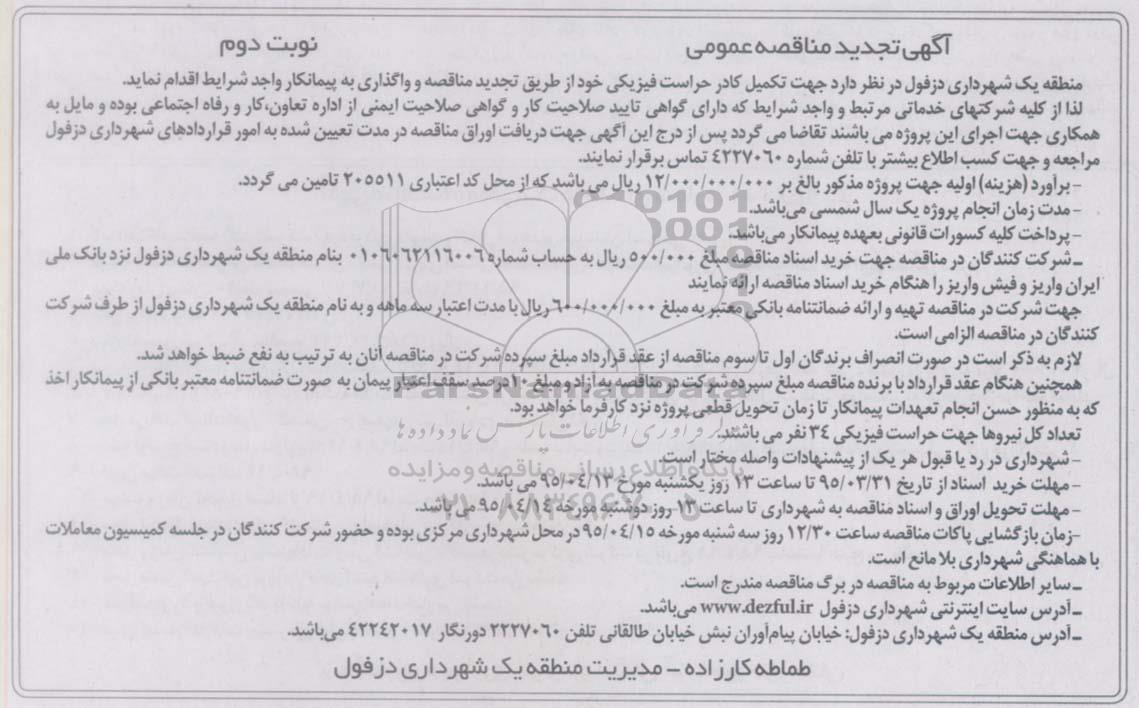 آگهی تجدید مناقصه عمومی
نوبت دوم
منطقه یک شهرداری دزفول در نظر دارد جهت تکمیل کادر حراست فیزیکی خود از طریق تجدید مناقصه و واگذاری به پیمانکار واجد شرایط اقدام نماید.
لذا از کلیه شرکتهای خدماتی مرتبط و واجد شرایط که دارای گواهی تایید صلاحیت کار و گواهی صلاحیت ایمنی از اداره تعاون،کار و رفاه اجتماعی بوده و مایل به
همکاری جهت اجرای این پروژه می باشند تقاضا می گردد پس از درج این آگهی جهت دریافت اوراق مناقصه در مدت تعیین شده به امور قراردادهای شهرداری دزفول
مراجعه و جهت کسب اطلاع بیشتر با تلفن شماره ٤٢٢٧٠٦٠ تماس برقرار نمایند.
- برآورد (هزینه) اولیه جهت پروژه مذکور بالغ بر ١٢/٠٠٠/٠٠٠/٠٠٠ ریال می باشد که از محل کد اعتباری ٢٠٥٥١١ تامین می گردد.
- مدت زمان انجام پروژه یک سال شمسی می‌باشد.
- پرداخت کلیه کسورات قانونی بعهده پیمانکار می‌باشد.
- شرکت کنندگان در مناقصه جهت خرید اسناد مناقصه مبلغ ٥٠٠/٠٠٠ ریال به حساب شماره ٠١٠٦٠٦٢١١٦٠٠٦ بنام منطقه یک شهرداری دزفول نزد بانک ملی
ایران واریز و فیش واریز را هنگام خرید اسناد مناقصه ارائه نمایند
جهت شرکت در مناقصه تهیه و ارائه ضمانتنامه بانکی معتبر به مبلغ ٦٠٠/٠٠٠/٠٠٠ ریال با مدت اعتبار سه ماهه و به نام منطقه یک شهرداری دزفول از طرف شرکت
کنندگان در مناقصه الزامی است.
لازم به ذکر است در صورت انصراف برندگان اول تا سوم مناقصه از عقد قرارداد مبلغ سپرده شرکت در مناقصه آنان به ترتیب به نفع ضبط خواهد شد.
همچنین هنگام عقد قرارداد با برنده مناقصه مبلغ سپرده شرکت در مناقصه به آزاد و مبلغ ١٠درصد سقف اعتبار پیمان به صورت ضمانتنامه معتبر بانکی از پیمانکار اخذ
که به منظور حسن انجام تعهدات پیمانکار تا زمان تحویل قطعی پروژه نزد کارفرما خواهد بود.
تعداد کل نیروها جهت حراست فیزیکی ٣٤ نفر می باشند.
- شهرداری در رد یا قبول هر یک از پیشنهادات واصله مختار است.
- مهلت خرید اسناد از تاریخ ٩٥/٠٣/٣١ تا ساعت ١٣ روز یکشنبه مورخ ٩٥/٠٤/١٣ می باشد.
- مهلت تحویل اوراق و اسناد مناقصه به شهرداری تا ساعت ١٣ روز دوشنبه مورخه ٩٥/٠٤/١٤ می باشد.
-زمان بازگشایی پاکات مناقصه ساعت ١٢/٣٠ روز سه شنبه مورخه ٩٥/٠٤/١٥ در محل شهرداری مرکزی بوده و حضور شرکت کنندگان در جلسه کمیسیون معاملات
با هماهنگی شهرداری بلا مانع است.
- سایر اطلاعات مربوط به مناقصه در برگ مناقصه مندرج است.
- آدرس سایت اینترنتی شهرداری دزفول www.dezful.ir می‌باشد.
- آدرس منطقه یک شهرداری دزفول: خیابان پیام‌آوران نبش خیابان طالقانی تلفن ٢٢٢٧٠٦٠ دورنگار ٤٢٢٤٢٠١٧ می‌باشد.
طماطه کارزاده - مدیریت منطقه یک شهرداری دزفول
ParsNamadData
پایگاه اطلاع رسانی مناقصه و مزایده